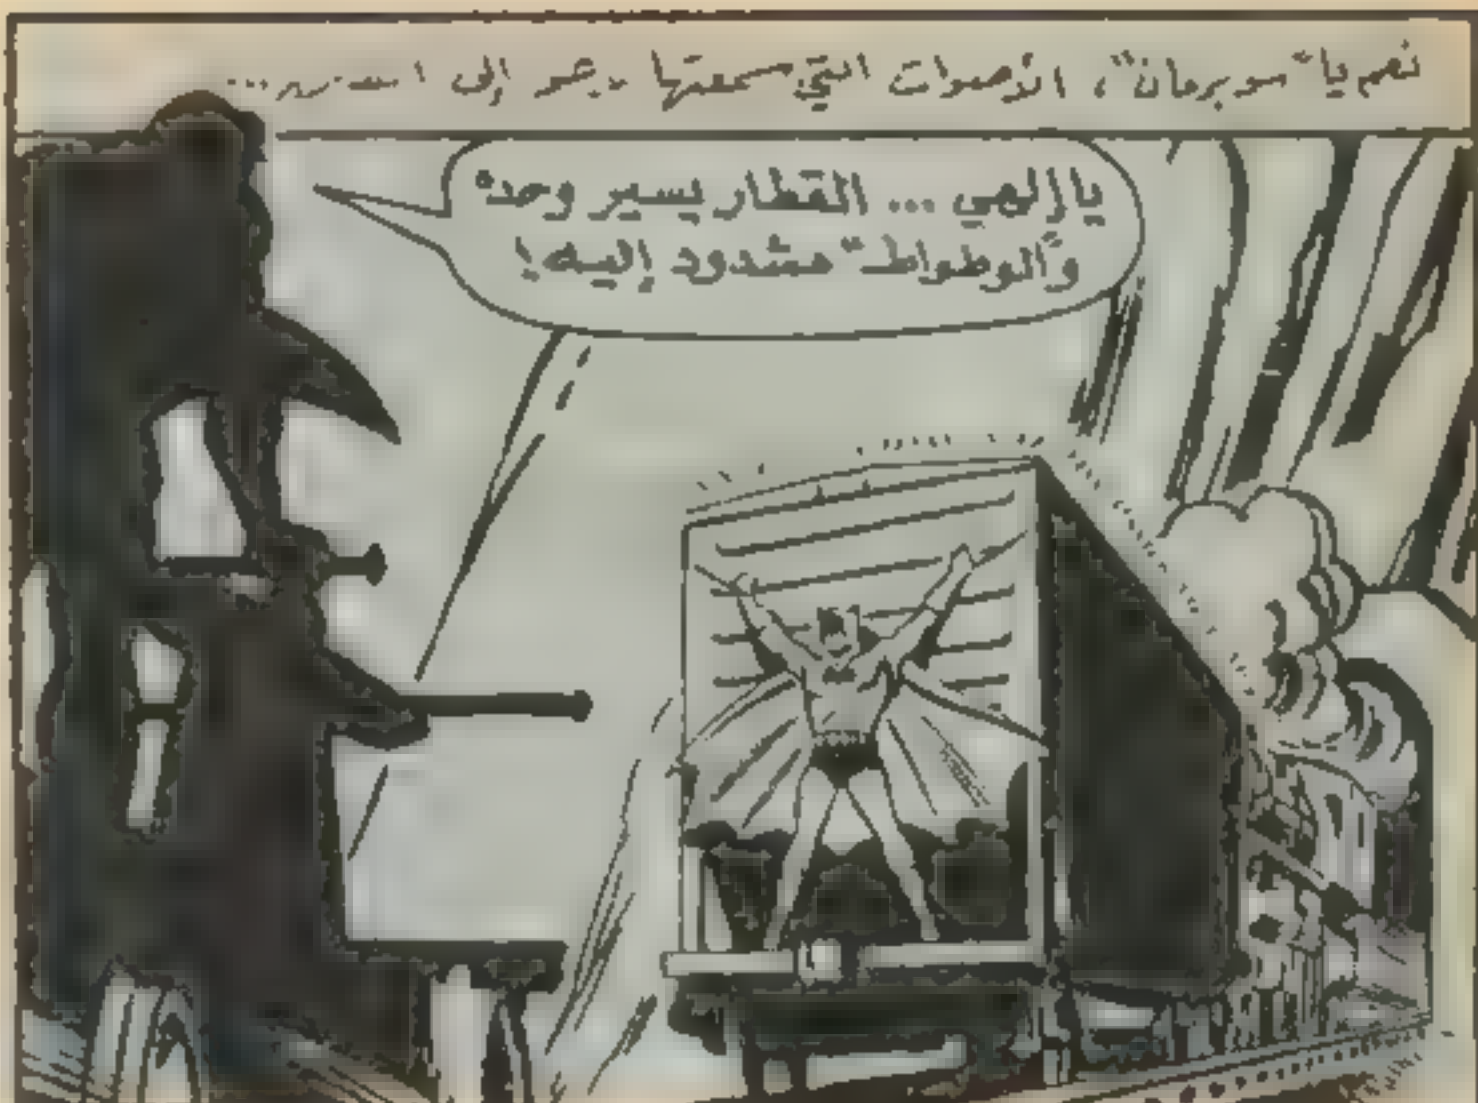 نعم يا "سوبرمان"، الأصوات التي سمعتها إلى
يا إلهي ... القطار يسير وحده
و"الوطواط" مشدود إليه!